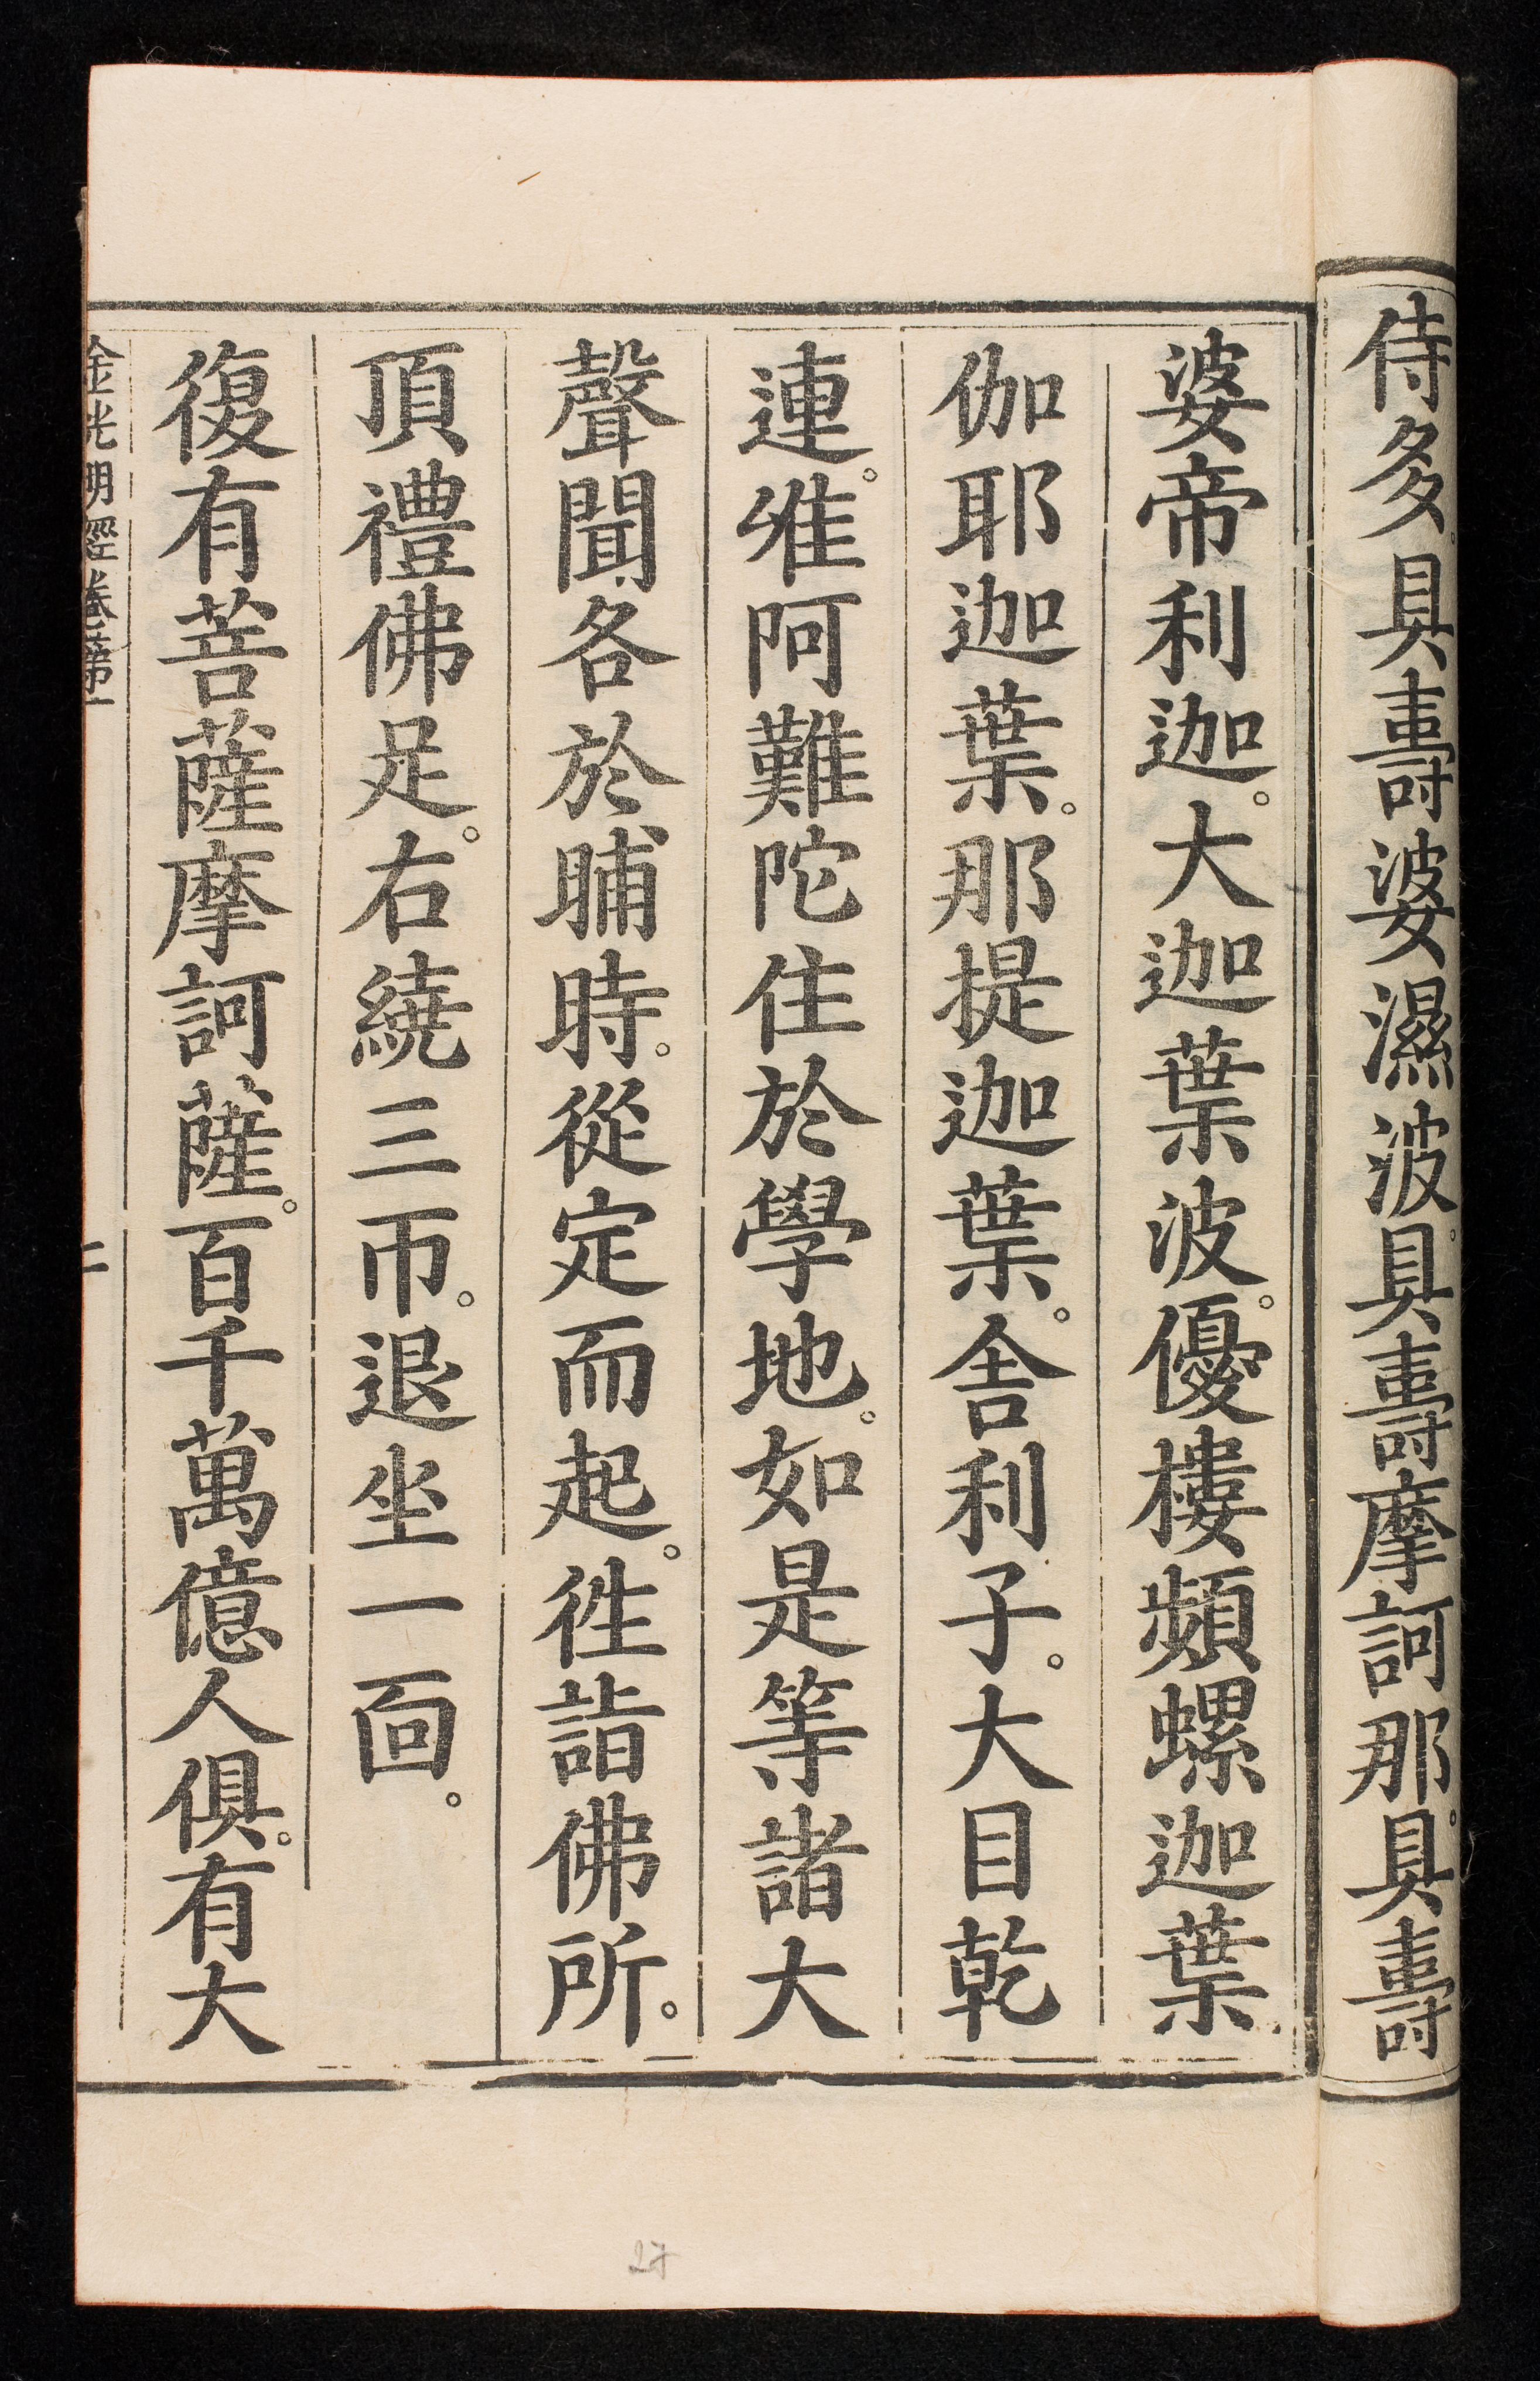 侍多。具壽婆濕波。具壽摩訶那。具壽
婆帝利迦。大迦葉波。優樓頻螺迦葉。
伽耶迦葉。那提迦葉。舍利子。大目乾
連。唯阿難陀住於學地。如是等諸大
聲聞。各於晡時。從定而起。徃詣佛所。
頂禮佛足。右繞三帀。退坐一面。
復有菩薩摩訶薩。百千萬億人俱。有大
金光明經卷第一
二
27